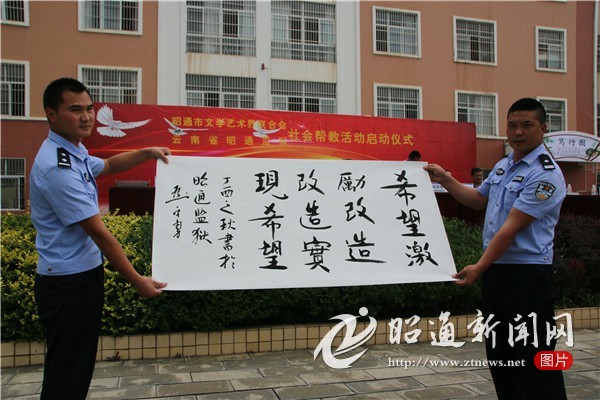 昭通市文学艺术界联合会
云南省昭通
社会帮教活动启动仪式
笃行园
希望激
勵改造
改造實
現希望
丁酉之秋書於
昭通监狱
昭通新闻网
http://www.ztnews.net
图片